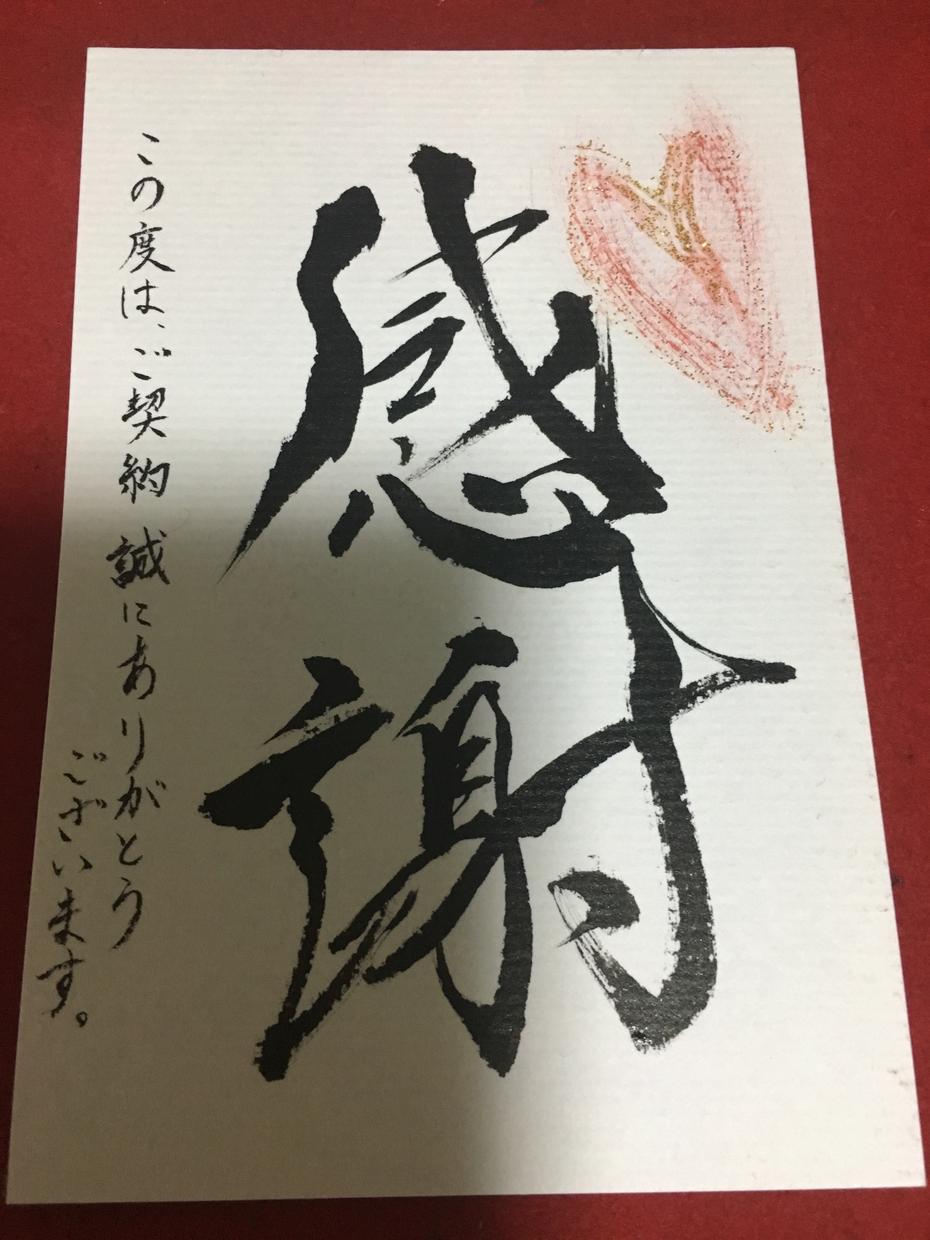 感謝
この度は、ご契約 誠にありがとう
ございます。